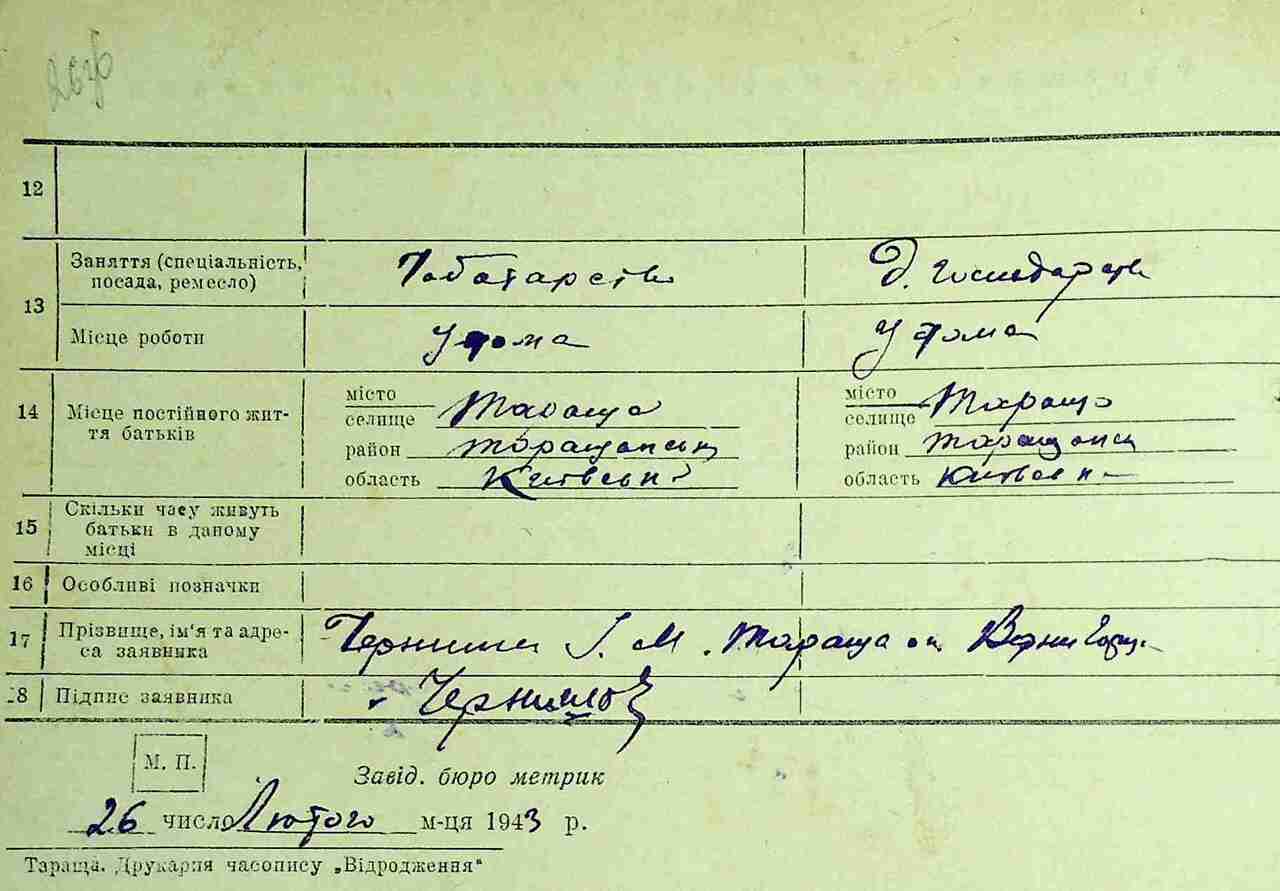 12
Заняття (спеціальність, посада, ремесло)
13
Д. Господарств
Місце роботи
У дома
У дома
14
Місце постійного життя батьків
місто
селище Тараща
район Таращанськ
область Київськ
місто
селище Тараща
район Таращанськ
область Київськ
15
Скільки часу живуть батьки в даному місці
16 Особливі позначки
17
Прізвище, ім'я та адреса заявника
І. М. Тараща
18 Підпис заявника
М. П.
Завід. бюро метрик
26 число Лютого м-ця 1943 р.
Тараща. Друкарня часопису „Відродження"